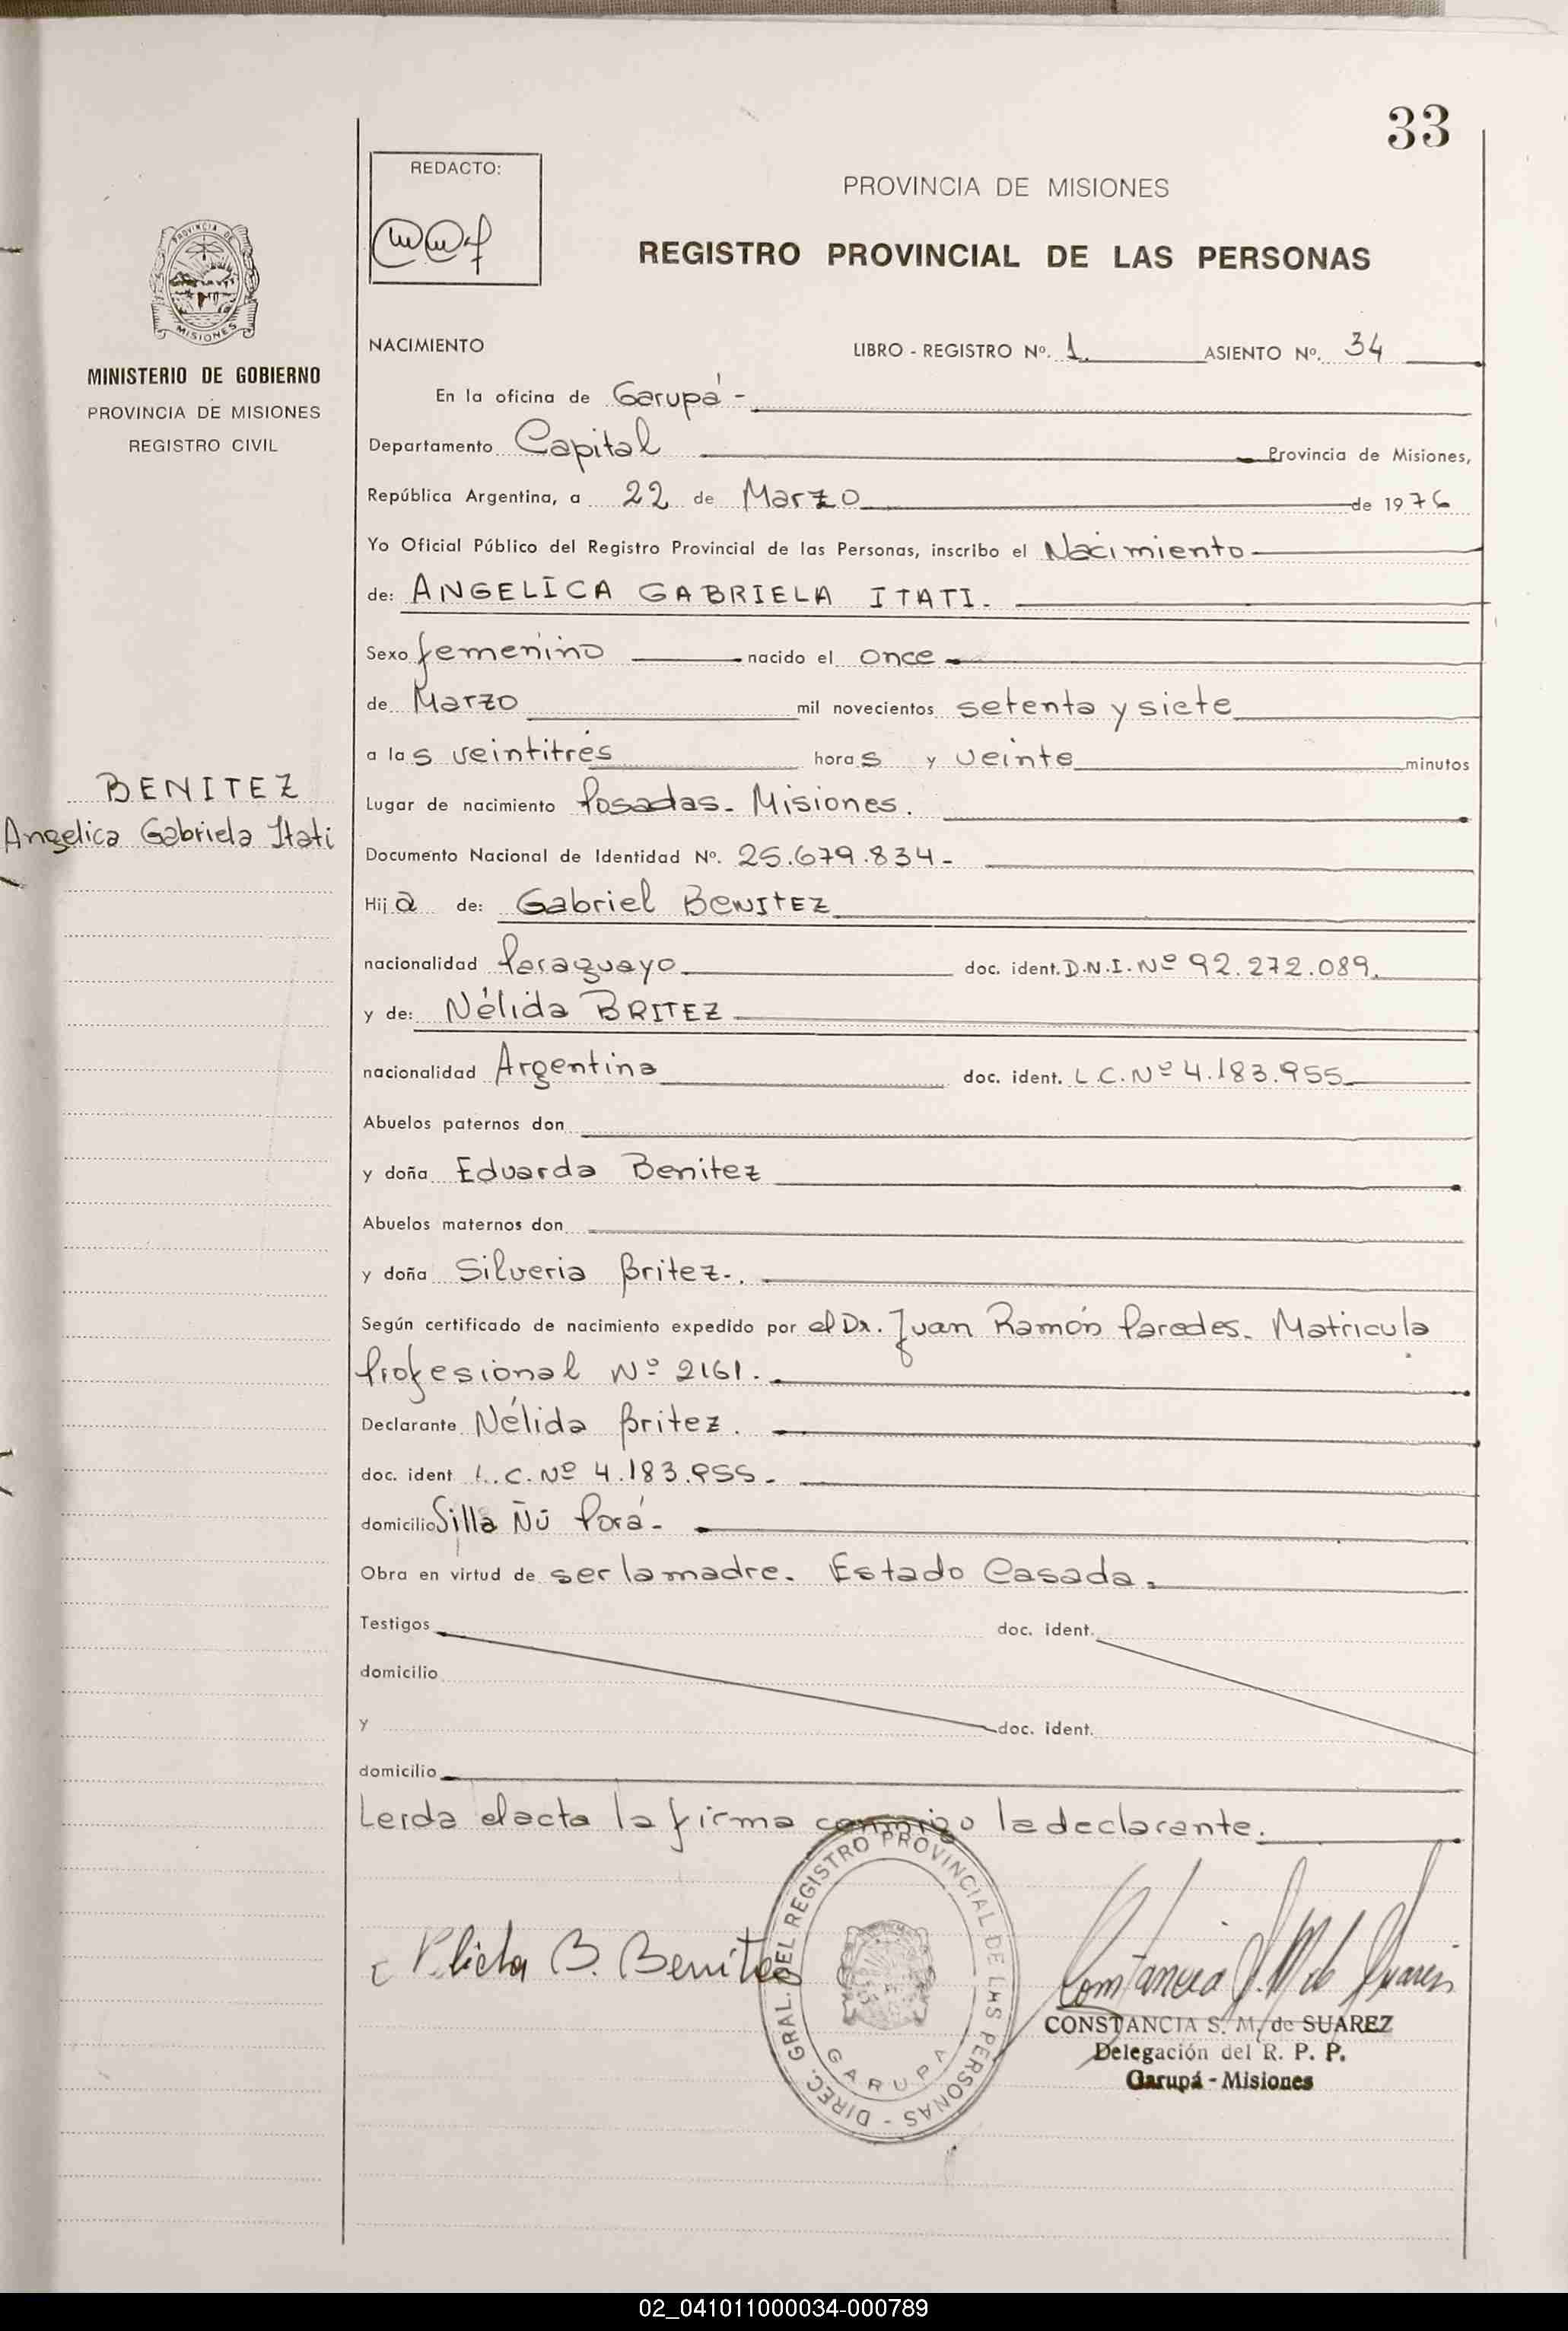 33
REDACTO:
PROVINCIA DE MISIONES
REGISTRO PROVINCIAL DE LAS PERSONAS
PROVINCIA DE
MISIONES
MINISTERIO DE GOBIERNO
PROVINCIA DE MISIONES
REGISTRO CIVIL
BENITEZ
Angelica Gabriela Itati
NACIMIENTO LIBRO - REGISTRO Nº. 1. ASIENTO Nº. 34
En la oficina de Garupá -
Departamento Capital Provincia de Misiones,
República Argentina, a 22 de Marzo de 1976
Yo Oficial Público del Registro Provincial de las Personas, inscribo el Nacimiento
de: ANGELICA GABRIELA ITATI.
Sexo femenino nacido el once
de Marzo mil novecientos setenta y siete
a las veintitrés horas y veinte minutos
Lugar de nacimiento Posadas - Misiones.
Documento Nacional de Identidad Nº. 25.679.834 -
Hija de: Gabriel BENITEZ
nacionalidad Paraguayo doc. ident. D.N.I. Nº 92.272.089.
y de: Nélida BRITEZ
nacionalidad Argentina doc. ident. L.C. Nº 4.183.955
Abuelos paternos don
y doña Eduarda Benitez
Abuelos maternos don
y doña Silveria Britez.
Según certificado de nacimiento expedido por el Dr. Juan Ramón Paredes. Matricula
Profesional Nº 2161.
Declarante Nélida Britez.
doc. ident L.C. Nº 4.183.955 -
domicilio Silla Ñú Porá -
Obra en virtud de ser la madre. Estado Casada.
Testigos doc. ident.
domicilio
y doc. ident.
domicilio
Leída el acta la firma conmigo la declarante.
B. Benitez
DIREC. GRAL. DEL REGISTRO PROVINCIAL DE LAS PERSONAS -
GARUPA
Constancia S. M. de Suarez
CONSTANCIA S. M. de SUAREZ
Delegación del R. P. P.
Garupá - Misiones
02_041011000034-000789